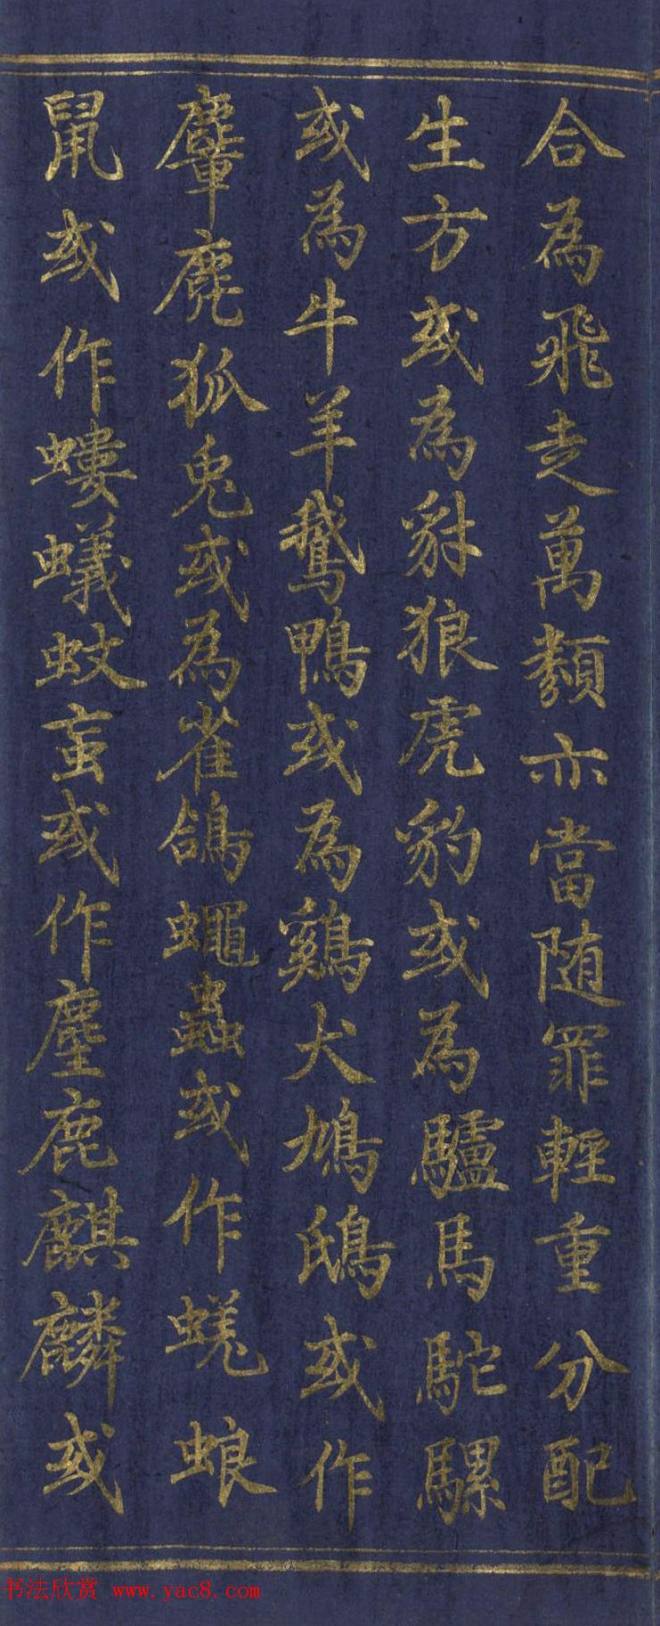 合為飛走萬類亦當随罪輕重分配
生方或為豺狼虎豹或為驢馬駝騾
或為牛羊鵞鴨或為鷄犬鳩鴟或作
麞鹿狐兔或為雀鴿蠅蟲或作蜣蜋
鼠或作螻蟻蚊䖟或作麈鹿麒麟或
书法欣赏 www.yac8.com